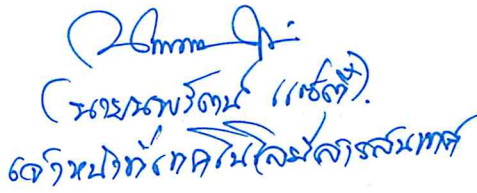 (นายนพรัตน์ แซ่ตี่)
เจ้าหน้าที่เทคโนโลยีสารสนเทศ